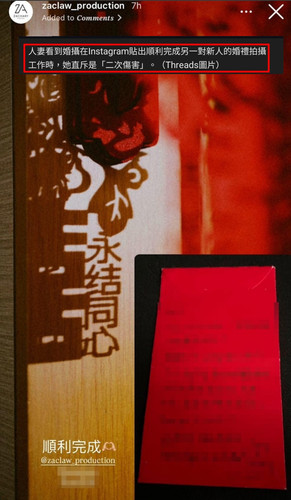 ZA
zaclaw_production 7h
Added to Comments >
人妻看到婚攝在Instagram貼出順利完成另一對新人的婚禮拍攝
工作時，她直斥是「二次傷害」。（Threads圖片）
永结同心
順利完成
@zaclaw_production